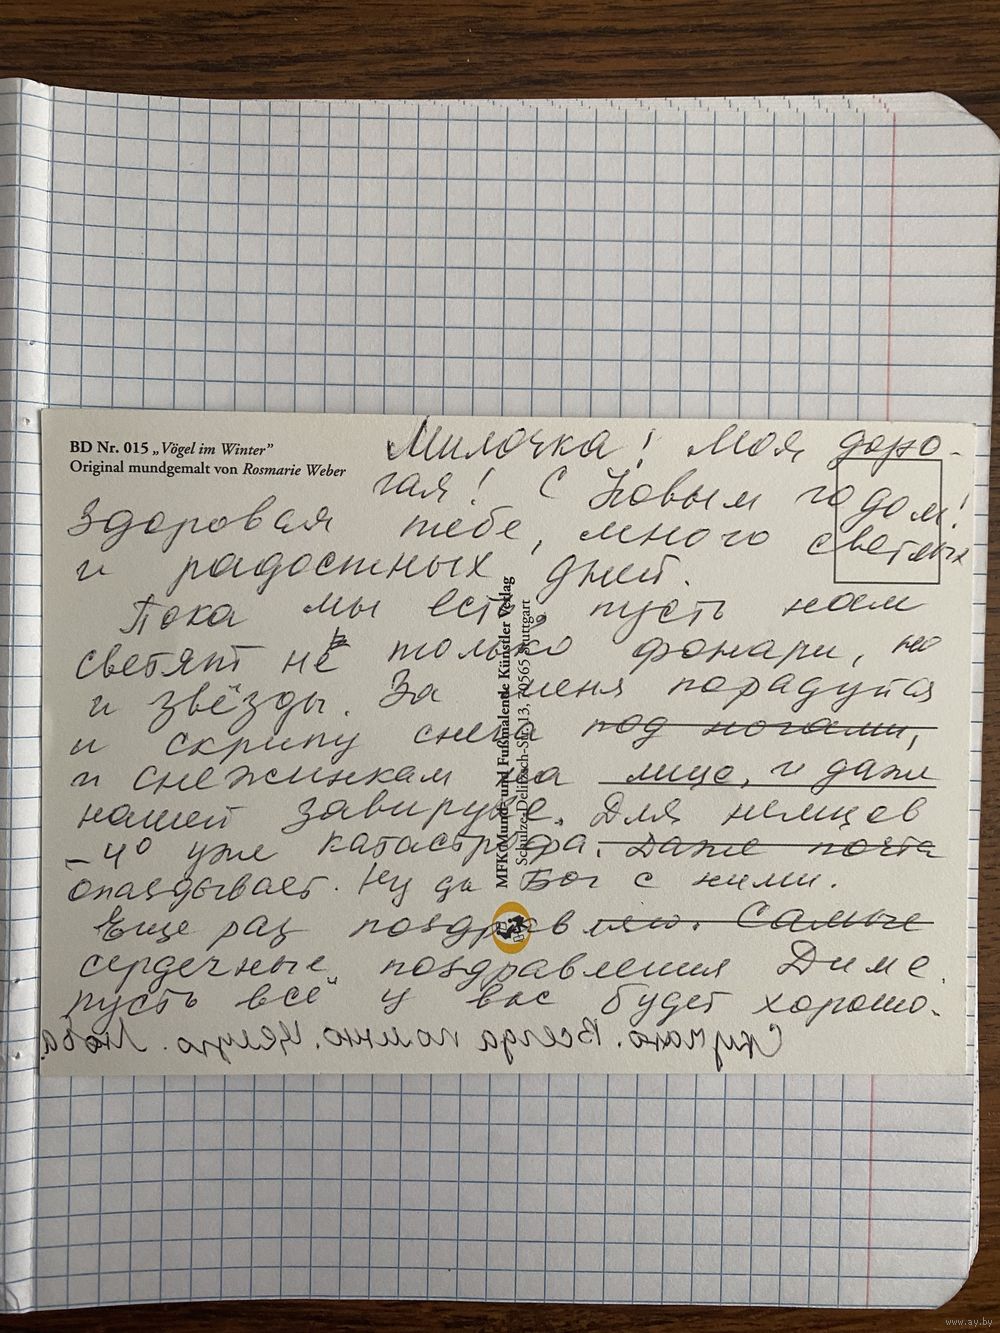 BD Nr. 015 „Vögel im Winter”
Original mundgemalt von Rosmarie Weber
Милочка! Моя доро-
гая! С Новым годом!
Здоровья тебе, много светлых
и радостных дней.
Пока мы есть, пусть нам
светят не только фонари, но
и звёзды. За меня порадуйся
и скрипу снега под ногами,
и снежинкам на лице, и даже
нашей завирухе. Для немцев
-4° уже катастрофа. Даже почта
опаздывает. Ну да Бог с ними.
Еще раз поздравляю. Самые
сердечные поздравления Диме.
пусть всё у вас будет хорошо.
Скучаю. Всегда помню. Целую. Люба.
MFK Mund- und Fußmalende Künstler Verlag
Schulze-Delitzsch-Str. 13, 70565 Stuttgart
www.ay.by